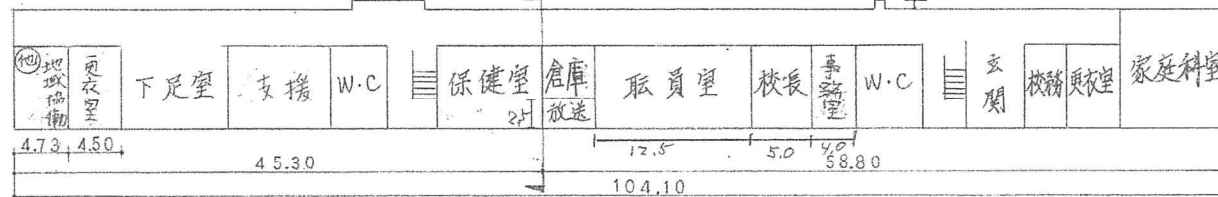 他 地域協働
更衣室
下足室
支援
W.C
保健室
倉庫
放送
職員室
校長
事務室
W.C
玄関
校務
更衣室
家庭科室
2.5
4.73
4.50
12.5
5.0
4.0
45.30
58.80
104.10